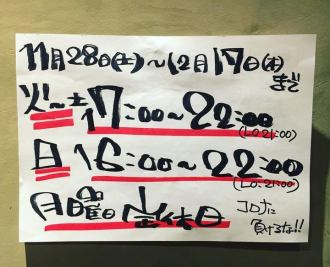 11月28日(土)〜12月17日(木)
まで
火〜土 17:00〜22:00
(L.O 21:00)
日 16:00〜22:00
(L.O. 21:00)
月曜日 定休日
コロナに
負けるな!!